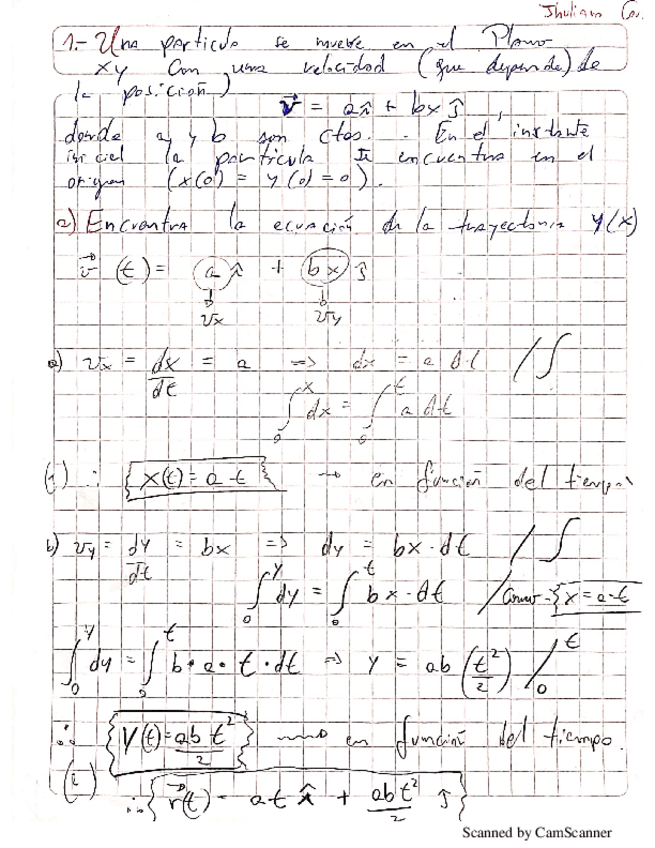 Jhuliano
1.- Una particula se mueve en el Plano
xy con una velocidad (que depende) de
la posición)
v⃗ = a î + bx ĵ,
donde a y b son ctos. En el instante
inicial la particula se encuentra en el
origen (x(0) = y(0) = 0).
a) Encuentra la ecuación de la trayectoria y(x)
v⃗ (t) = a î + bx ĵ
vx vy
a) vx = dx/dt = a => dx = a dt /∫
∫₀ˣ dx = ∫₀ᵗ a dt
(1) ∴ {x(t) = a t} → en función del tiempo
b) vy = dy/dt = bx => dy = bx · dt /∫
∫₀ʸ dy = ∫₀ᵗ bx · dt / Como {x = a·t
∫₀ʸ dy = ∫₀ᵗ b · a · t · dt => y = ab (t²/2) /₀ᵗ
∴ {y(t) = ab t²/2} → en función del tiempo.
∴ {r⃗(t) = at î + abt²/2 ĵ}
Scanned by CamScanner